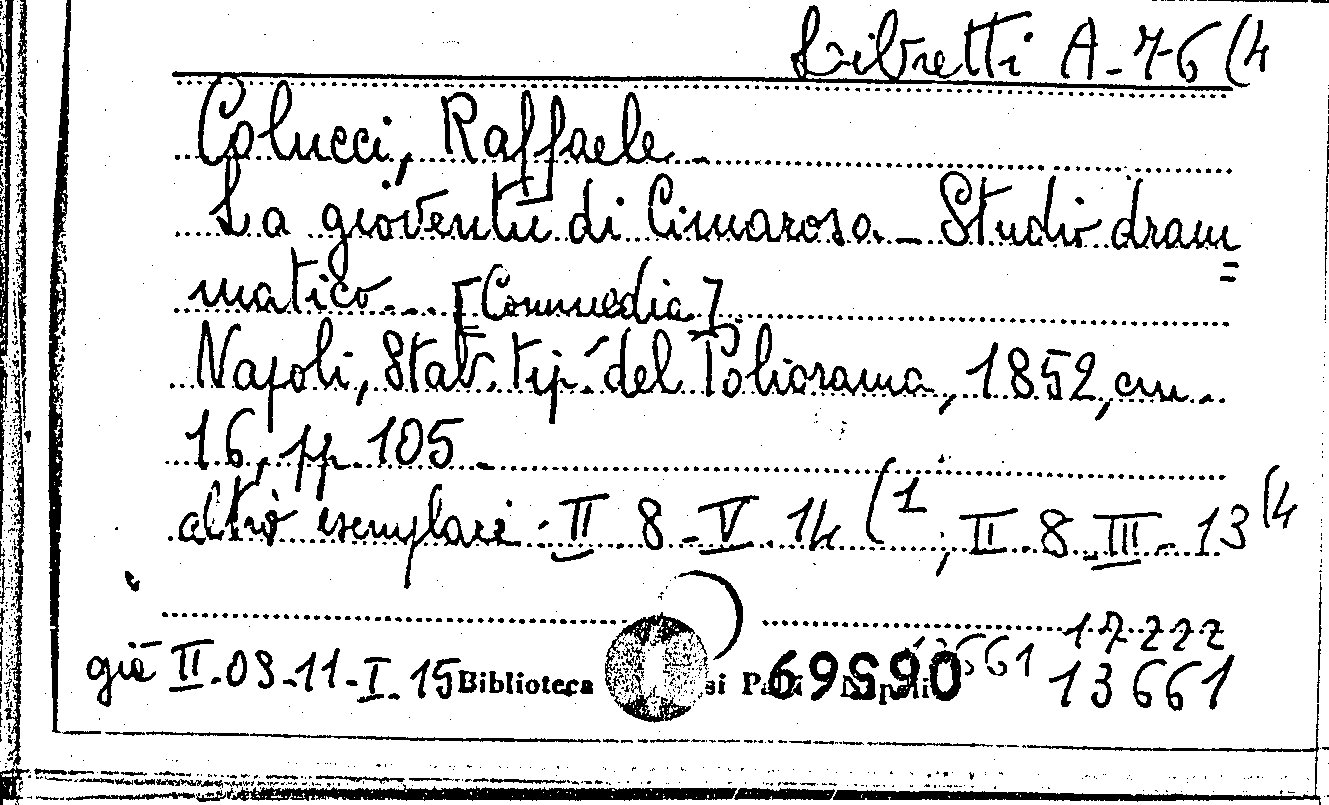 Libretti A-76(4
Colucci, Raffaele -
La gioventù di Cimarosa - Studio dram=
matico... [Commedia].
Napoli, Stab. tip. del Poliorama, 1852, cm.
16, pp. 105 -
altri esemplari: II 8-V. 14 (1, II. 8-III-13(4
17222
già II.03-11-I.15 Biblioteca Napoli 13661